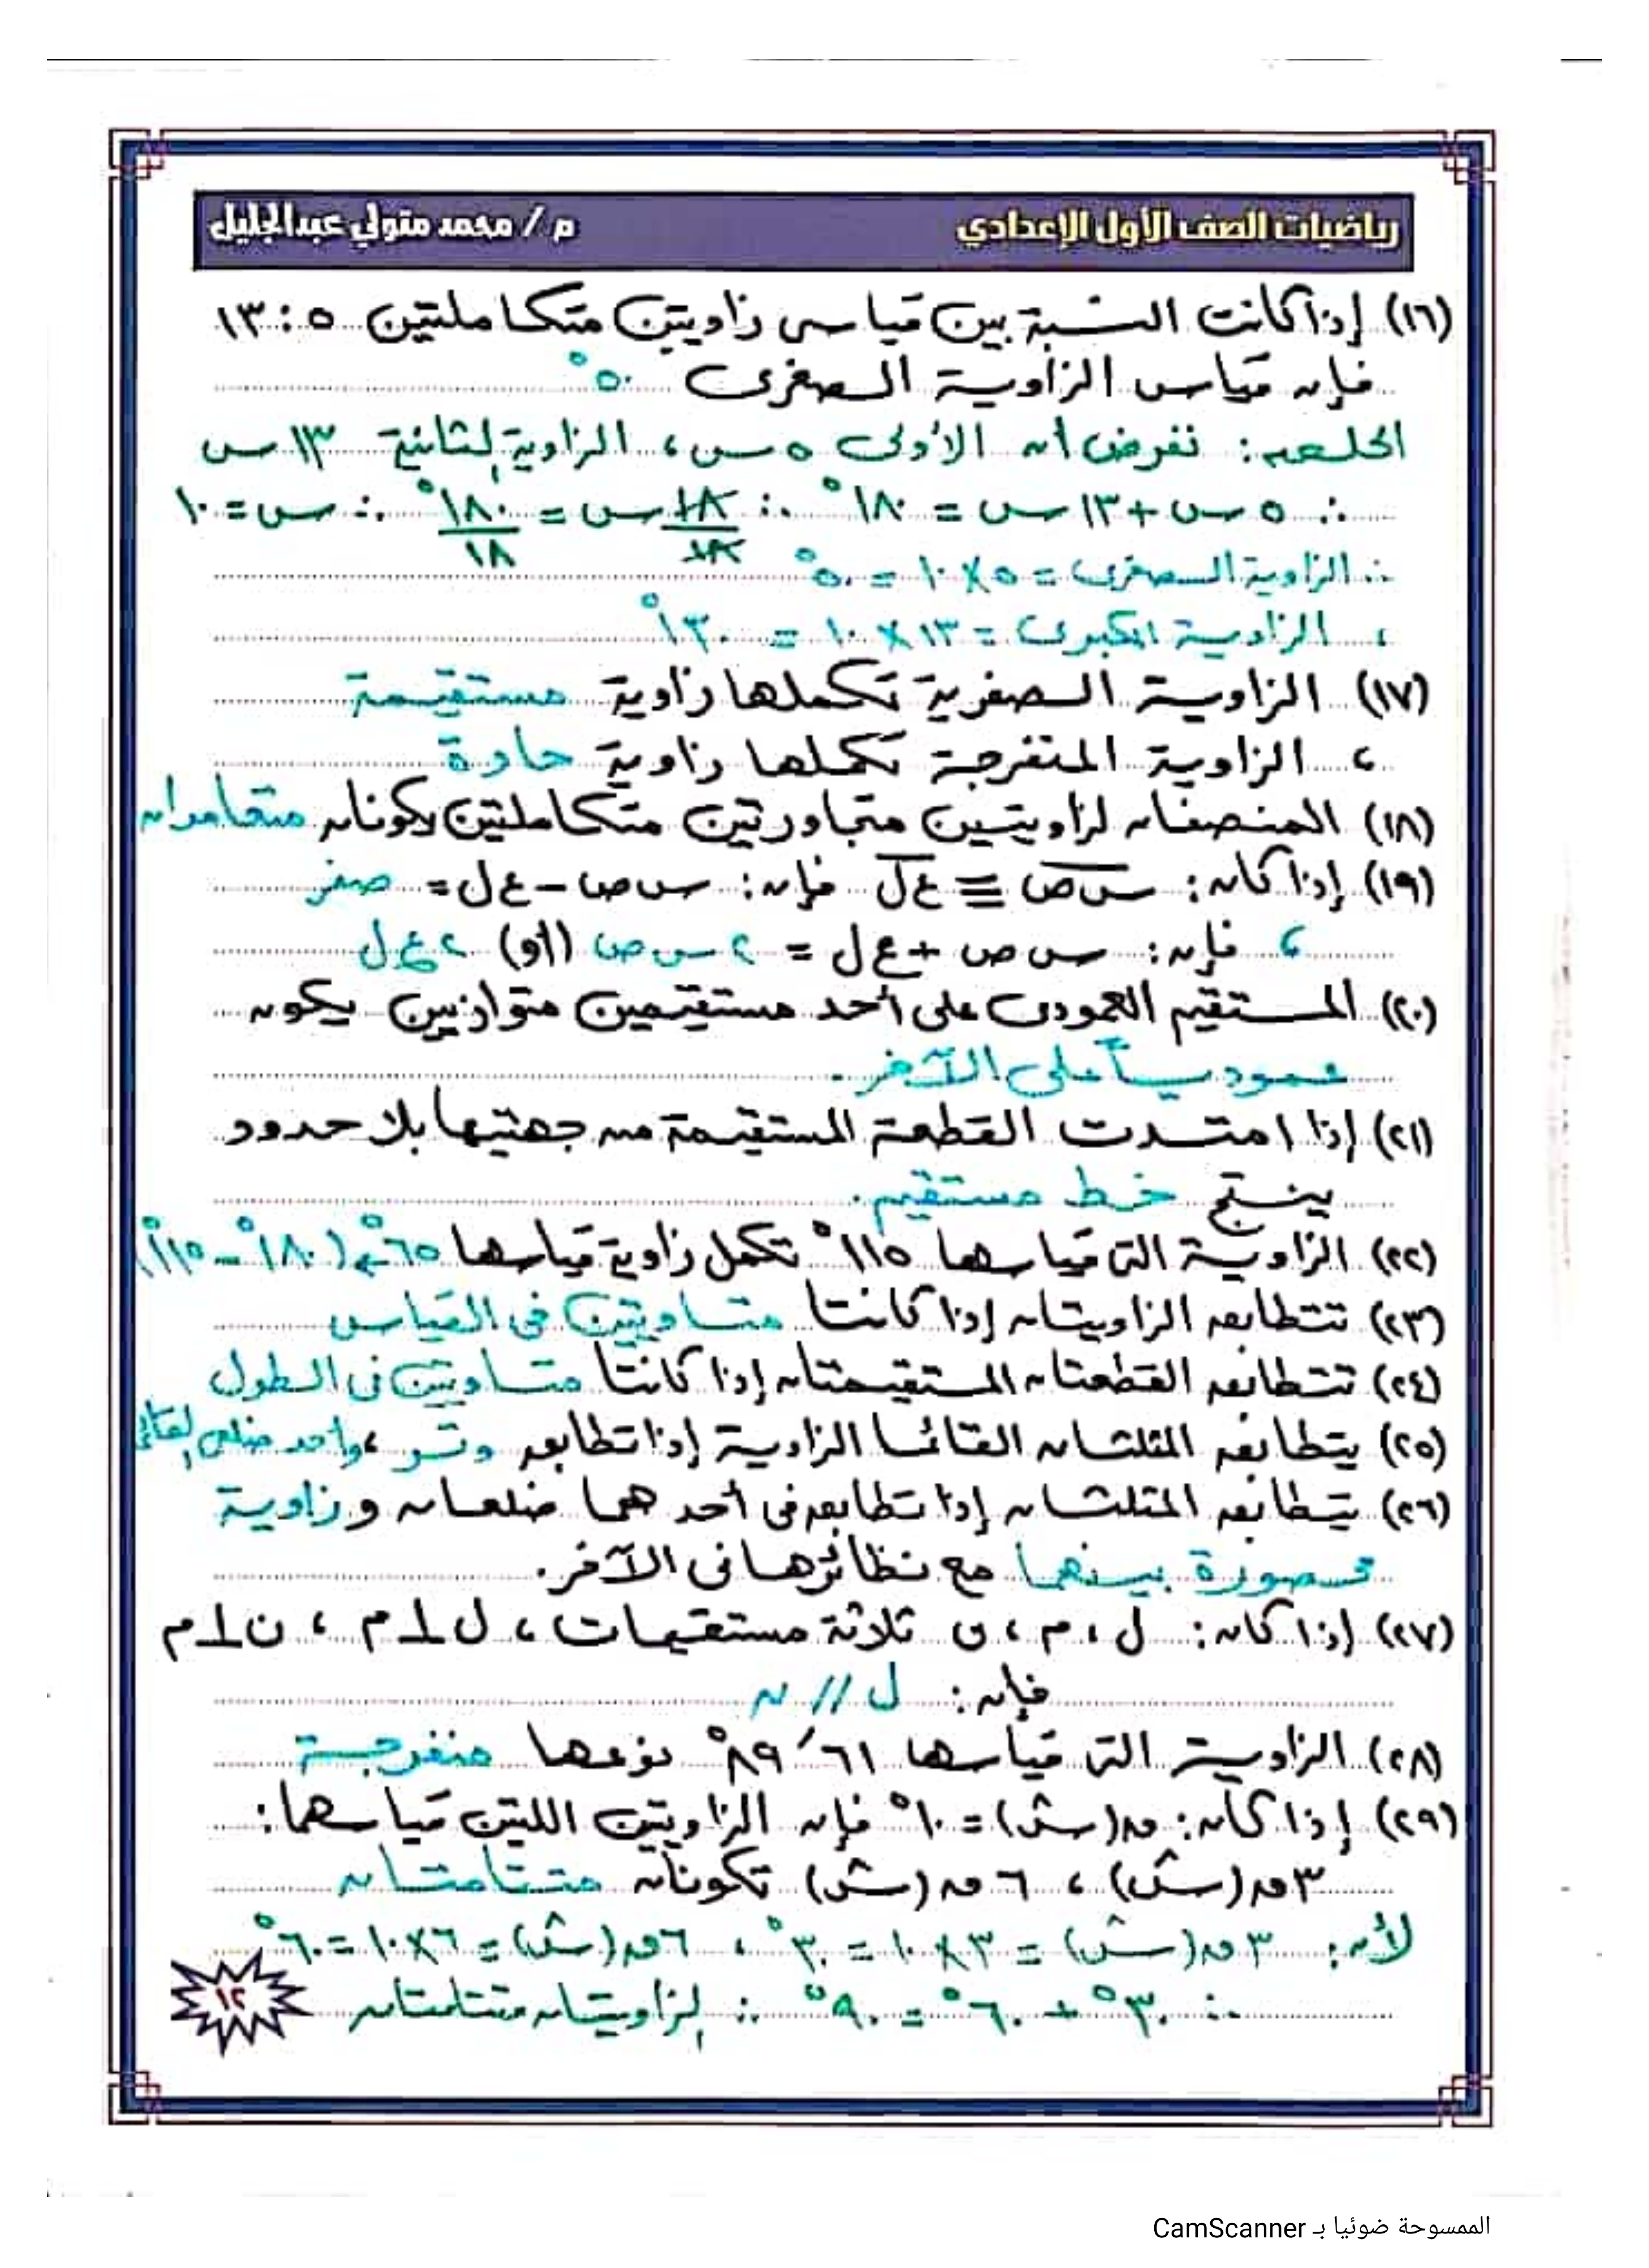 رياضيات الصف الأول الإعدادي م / محمد متولي عبدالجليل
(١٦) إذا كانت النسبة بين قياسى زاويتين متكاملتين ٥ : ١٣
فإن قياس الزاوية الصغرى ٥٠°
الحل هو: نفرض أن الأولى ٥ س ، الزاوية الثانية ١٣ س
∴ ٥ س + ١٣ س = ١٨٠° ∴ ١٨ س / ١٨ = ١٨٠° / ١٨ ∴ س = ١٠
∴ الزاوية الصغرى = ٥ × ١٠ = ٥٠°
، الزاوية الكبرى = ١٣ × ١٠ = ١٣٠°
(١٧) الزاوية الصفرية تكملها زاوية مستقيمة
، الزاوية المنفرجة تكملها زاوية حادة
(١٨) المنصفان لزاويتين متجاورتين متكاملتين يكونان متعامدان
(١٩) إذا كان: س ص ≡ ع ل فإن: س ص − ع ل = صفر
، فإن: س ص + ع ل = ٢ س ص (أو) ٢ ع ل
(٢٠) المستقيم العمودى على أحد مستقيمين متوازيين يكون
عموديـاً على الآخر.
(٢١) إذا امتدت القطعة المستقيمة من جهتيها بلا حدود
ينتج خط مستقيم.
(٢٢) الزاوية التى قياسها ١١٥° تكمل زاوية قياسها ٦٥° ⇐ (١٨٠° − ١١٥°)
(٢٣) تتطابق الزاويتان إذا كانتا متساويتين فى القياس
(٢٤) تتطابق القطعتان المستقيمتان إذا كانتا متساويتين فى الطول
(٢٥) يتطابق المثلثان القائما الزاوية إذا تطابق وتر ، وأحد ضلعى القائمة
(٢٦) يتطابق المثلثان إذا تطابق فى أحدهما ضلعان وزاوية
محصورة بينهما مع نظائرها فى الآخر.
(٢٧) إذا كان: ل ، م ، ن ثلاثة مستقيمات ، ل ⊥ م ، ن ⊥ م
فإن: ل // ن
(٢٨) الزاوية التى قياسها ٦١ َ ٨٩° نوعها منفرجة
(٢٩) إذا كان: ق(س) = ١٠° فإن الزاويتين اللتين قياسهما:
٣ ق(س) ، ٦ ق(س) تكونان متتامتان
لأن: ٣ ق(س) = ٣ × ١٠ = ٣٠° ، ٦ ق(س) = ٦ × ١٠ = ٦٠°
∴ ٣٠° + ٦٠° = ٩٠° ∴ الزاويتان متتامتان
١٢
الممسوحة ضوئيا بـ CamScanner